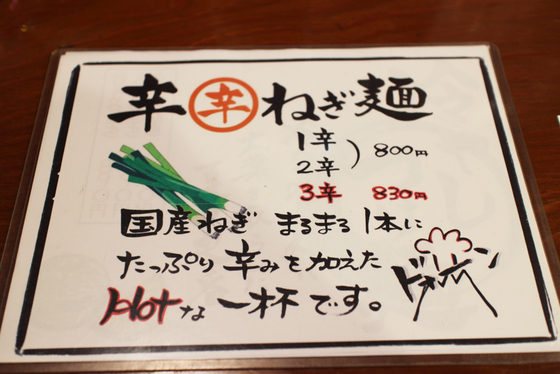 辛辛ねぎ麺
1辛
2辛 ) 800円
3辛 830円
国産ねぎ まるまる1本に
たっぷり辛みを加えた
Hotな一杯です。
ドッカーン